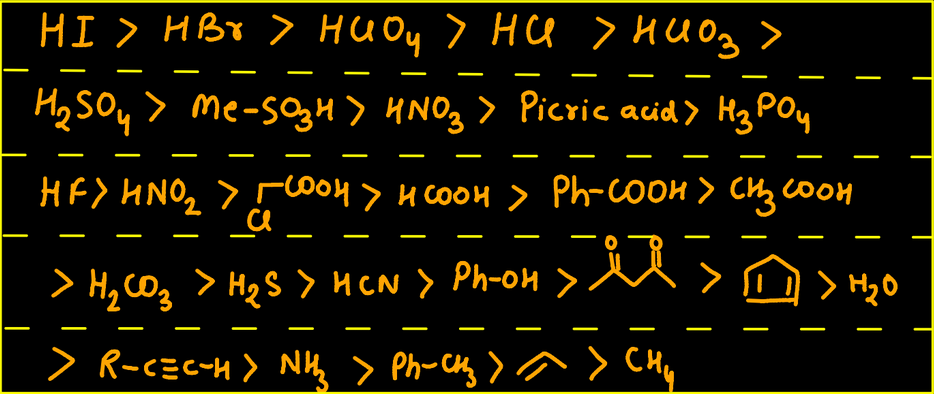 HI > HBr > HClO₄ > HCl > HClO₃ >
H₂SO₄ > Me-SO₃H > HNO₃ > Picric acid > H₃PO₄
HF > HNO₂ > Cl COOH > HCOOH > Ph-COOH > CH₃COOH
> H₂CO₃ > H₂S > HCN > Ph-OH > O O > > H₂O
> R-C≡C-H > NH₃ > Ph-CH₃ > > CH₄